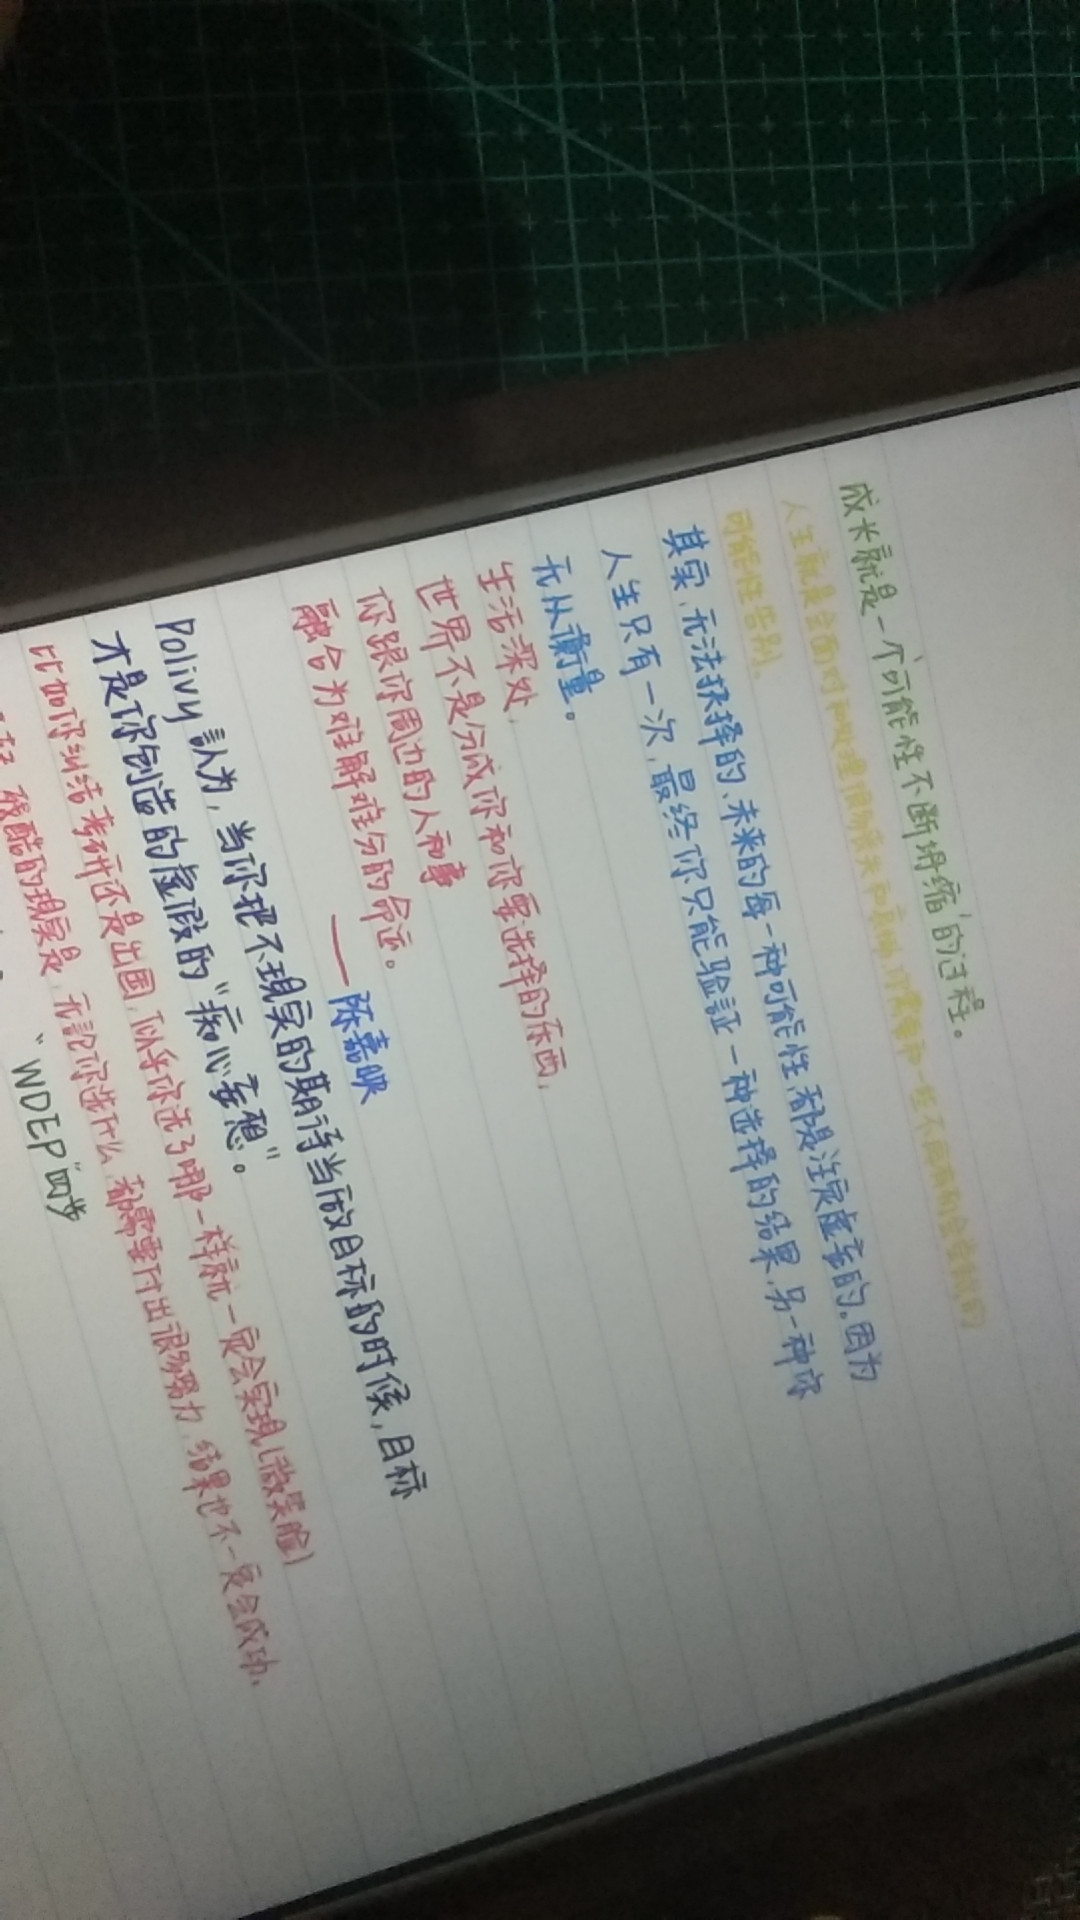 成长就是一个'可能性不断坍缩'的过程。
人生就是会面对和处理很多丧失和哀悼,你需要和一些不
可能性告别。
其实,无法抉择的、未来的每一种可能性,都是注定虚妄的。因为
人生只有一次,最终你只能验证一种选择的结果,另一种你
无从衡量。
生活深处,
世界不是分成你和你要选择的东西,
你跟你周边的人和事
融合为难解难分的命运。
——陈嘉映
Polivy認为,当你把不現实的期待当做目标的时候,目标
才是你创造的虚假的“痴心妄想”。
比如你纠结考研还是出国,似乎你选了哪一样就一定会实現(微笑脸)
残酷的現实是,无論你选什么,都需要付出很多努力,结果也不一定会成功.
“WDEP”四步